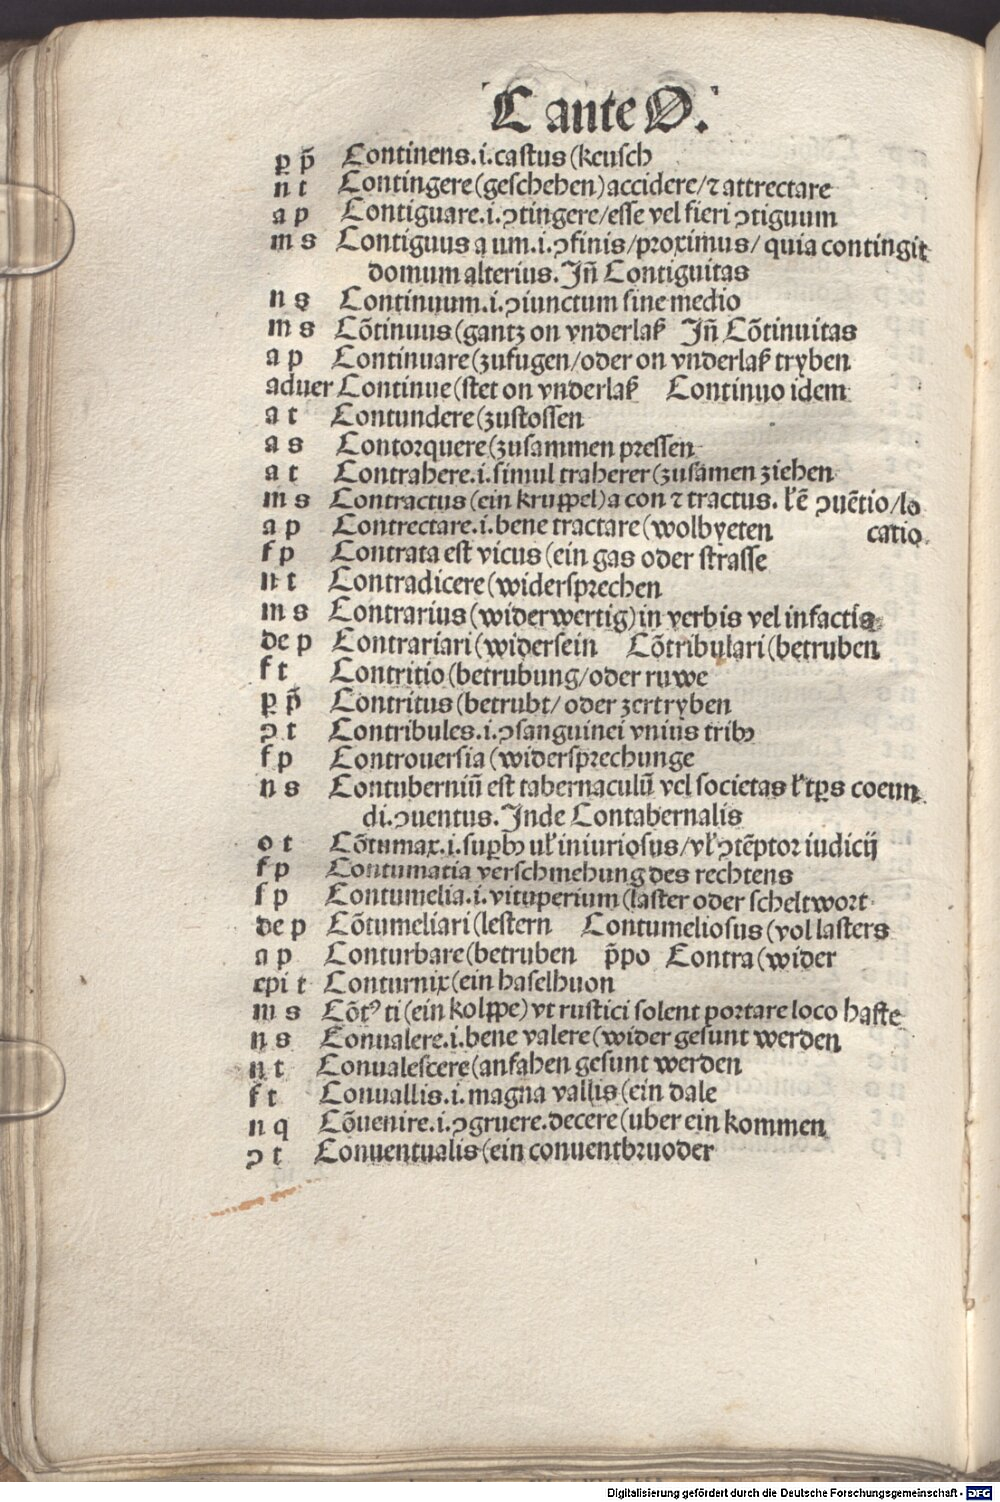 C ante O.
ꝑ p̄ Continens.i.castus (keusch
n t Contingere (geschehen) accidere/⁊ attrectare
a p Contiguare.i.ↄtingere/esse vel fieri ↄtiguum
m s Contiguus a um.i.ↄfinis/proximus/ quia contingit
domum alterius. Jn̄ Contiguitas
n s Continuum.i.ↄiunctum sine medio
m s Cōtinuus (gantz on vnderlaß Jn̄ Cōtinuitas
a p Continuare (zufugen/oder on vnderlaß tryben
aduer Continue (stet on vnderlaß Continuo idem
a t Contundere (zustossen
a s Contorquere (zusammen pressen
a t Contrahere.i.simul traherer (zusamen ziehen
m s Contractus (ein kruppel) a con ⁊ tractus. ł ē ↄuētio/lo
a p Contrectare.i.bene tractare (wolbyeten catio.
f p Contrata est vicus (ein gas oder strasse
n t Contradicere (widersprechen
m s Contrarius (widerwertig) in verbis vel in factis
de p Contrariari (widersein Cōtribulari (betruben
f t Contritio (betrubung/oder ruwe
ꝑ p̄ Contritus (betrubt/ oder zertryben
ↄ t Contribules.i.ↄsanguinei vnius tribꝫ
f p Controuersia (widersprechunge
n s Contuberniū est tabernaculū vel societas ł tꝑs coeun
di.ↄuentus. Jnde Contabernalis
o t Cōtumax.i.suꝑbꝫ uł iniuriosus/vł ↄtēptor iudicij
f p Contumatia verschmehung des rechtens
f p Contumelia.i.vituperium (laster oder scheltwort
de p Cōtumeliari (lestern Contumeliosus (vol lasters
a p Conturbare (betruben p̄po Contra (wider
epi t Conturnix (ein haselhuon
m s Cōtꝰ ti (ein kolppe) vt rustici solent portare loco haste
n s Conualere.i.bene valere (wider gesunt werden
n t Conualescere (anfahen gesunt werden
f t Conuallis.i.magna vallis (ein dale
n q Cōuenire.i.ↄgruere.decere (uber ein kommen
ↄ t Conuentualis (ein conuentbruoder
Digitalisierung gefördert durch die Deutsche Forschungsgemeinschaft - DFG